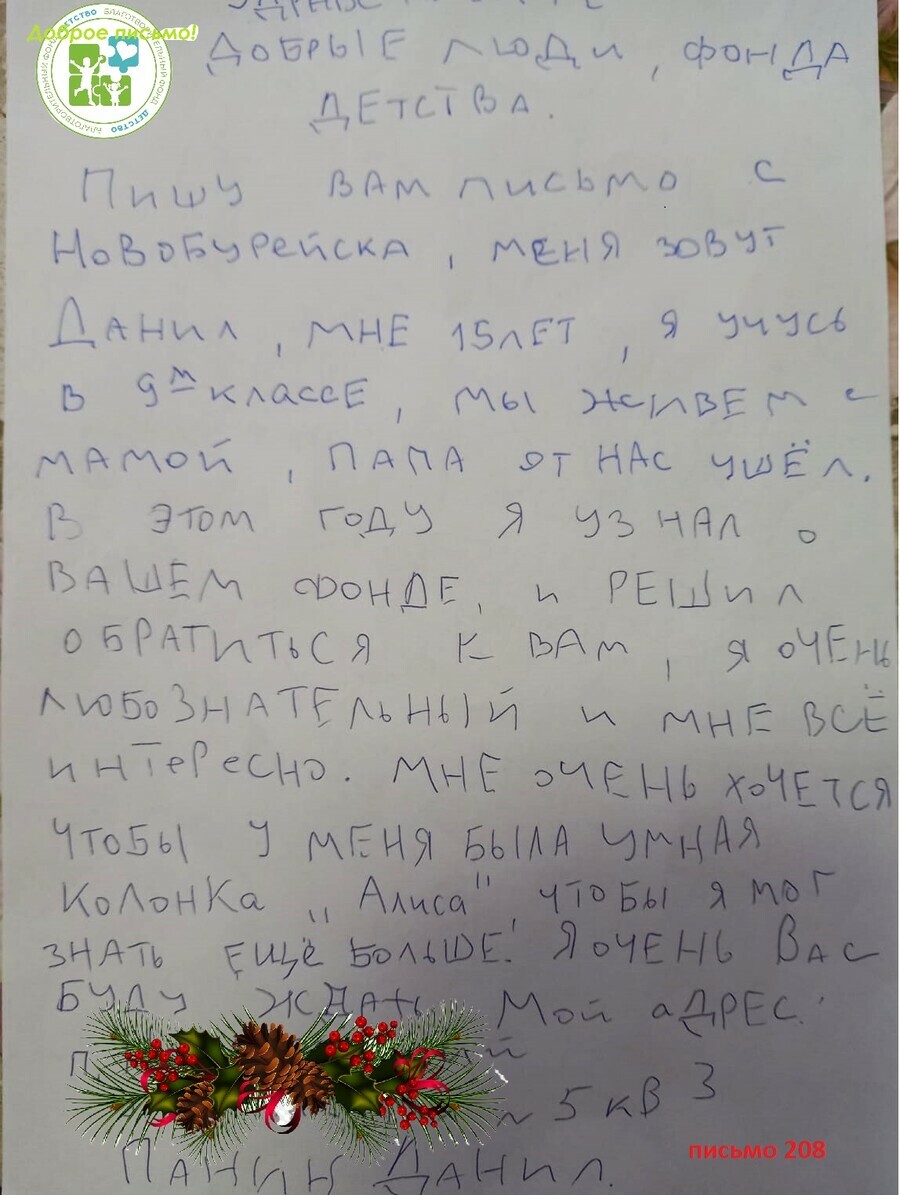 Доброе письмо!
БЛАГОТВОРИТЕЛЬНЫЙ ФОНД ДЕТСТВО БЛАГОТВОРИТЕЛЬНЫЙ ФОНД ДЕТСТВО
ДОБРЫЕ ЛЮДИ, ФОНДА
ДЕТСТВА.
Пишу ВАМ письмо с
НОВОБУРЕЙСКА, МЕНЯ ЗОВУТ
ДАНИЛ, МНЕ 15 ЛЕТ, Я УЧУСЬ
В 9м КЛАССЕ, МЫ ЖИВЕМ с
МАМОЙ, ПАПА ОТ НАС УШЁЛ.
В ЭТОМ ГОДУ Я УЗНАЛ о
ВАШЕМ ФОНДЕ, и РЕШИЛ
ОБРАТИТЬСЯ К ВАМ, Я ОЧЕНЬ
ЛЮБОЗНАТЕЛЬНЫЙ и МНЕ ВСЁ
ИНТЕРЕСНО. МНЕ ОЧЕНЬ ХОЧЕТСЯ
ЧТОБЫ У МЕНЯ БЫЛА УМНАЯ
КОЛОНКА „Алиса", ЧТОБЫ Я МОГ
ЗНАТЬ ЕЩЁ БОЛЬШЕ! Я ОЧЕНЬ ВАС
БУДУ ЖДАТЬ Мой аДРЕС:
5 КВ 3
ПАНИН ДАНИЛ.
письмо 208